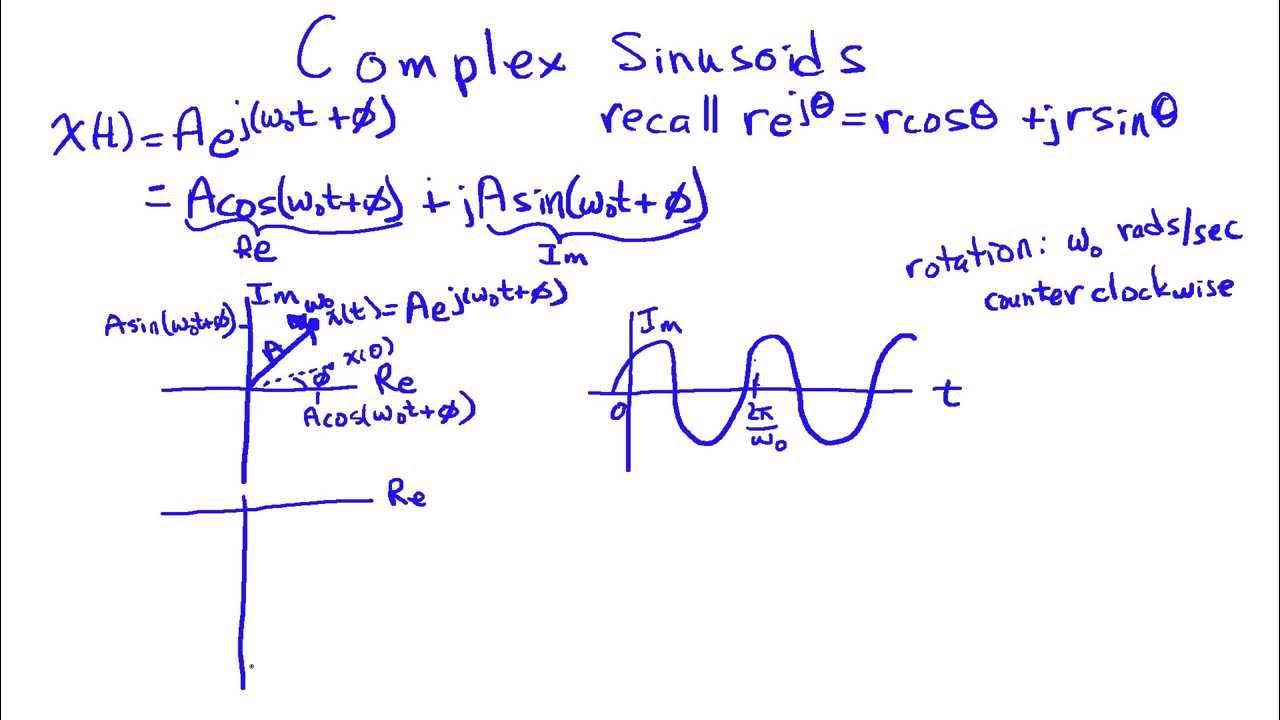 Complex Sinusoids
x(t) = Ae^{j(ω₀t + ϕ)}
recall re^{jθ} = rcosθ + jrsinθ
= Acos(ω₀t+ϕ) + jAsin(ω₀t+ϕ)
Re
Im
rotation: ω₀ rads/sec
counter clockwise
Im
ω₀
x(t) = Ae^{j(ω₀t+ϕ)}
Asin(ω₀t+ϕ)
A
x(0)
ϕ
Re
Acos(ω₀t+ϕ)
Im
t
0
2π/ω₀
Re